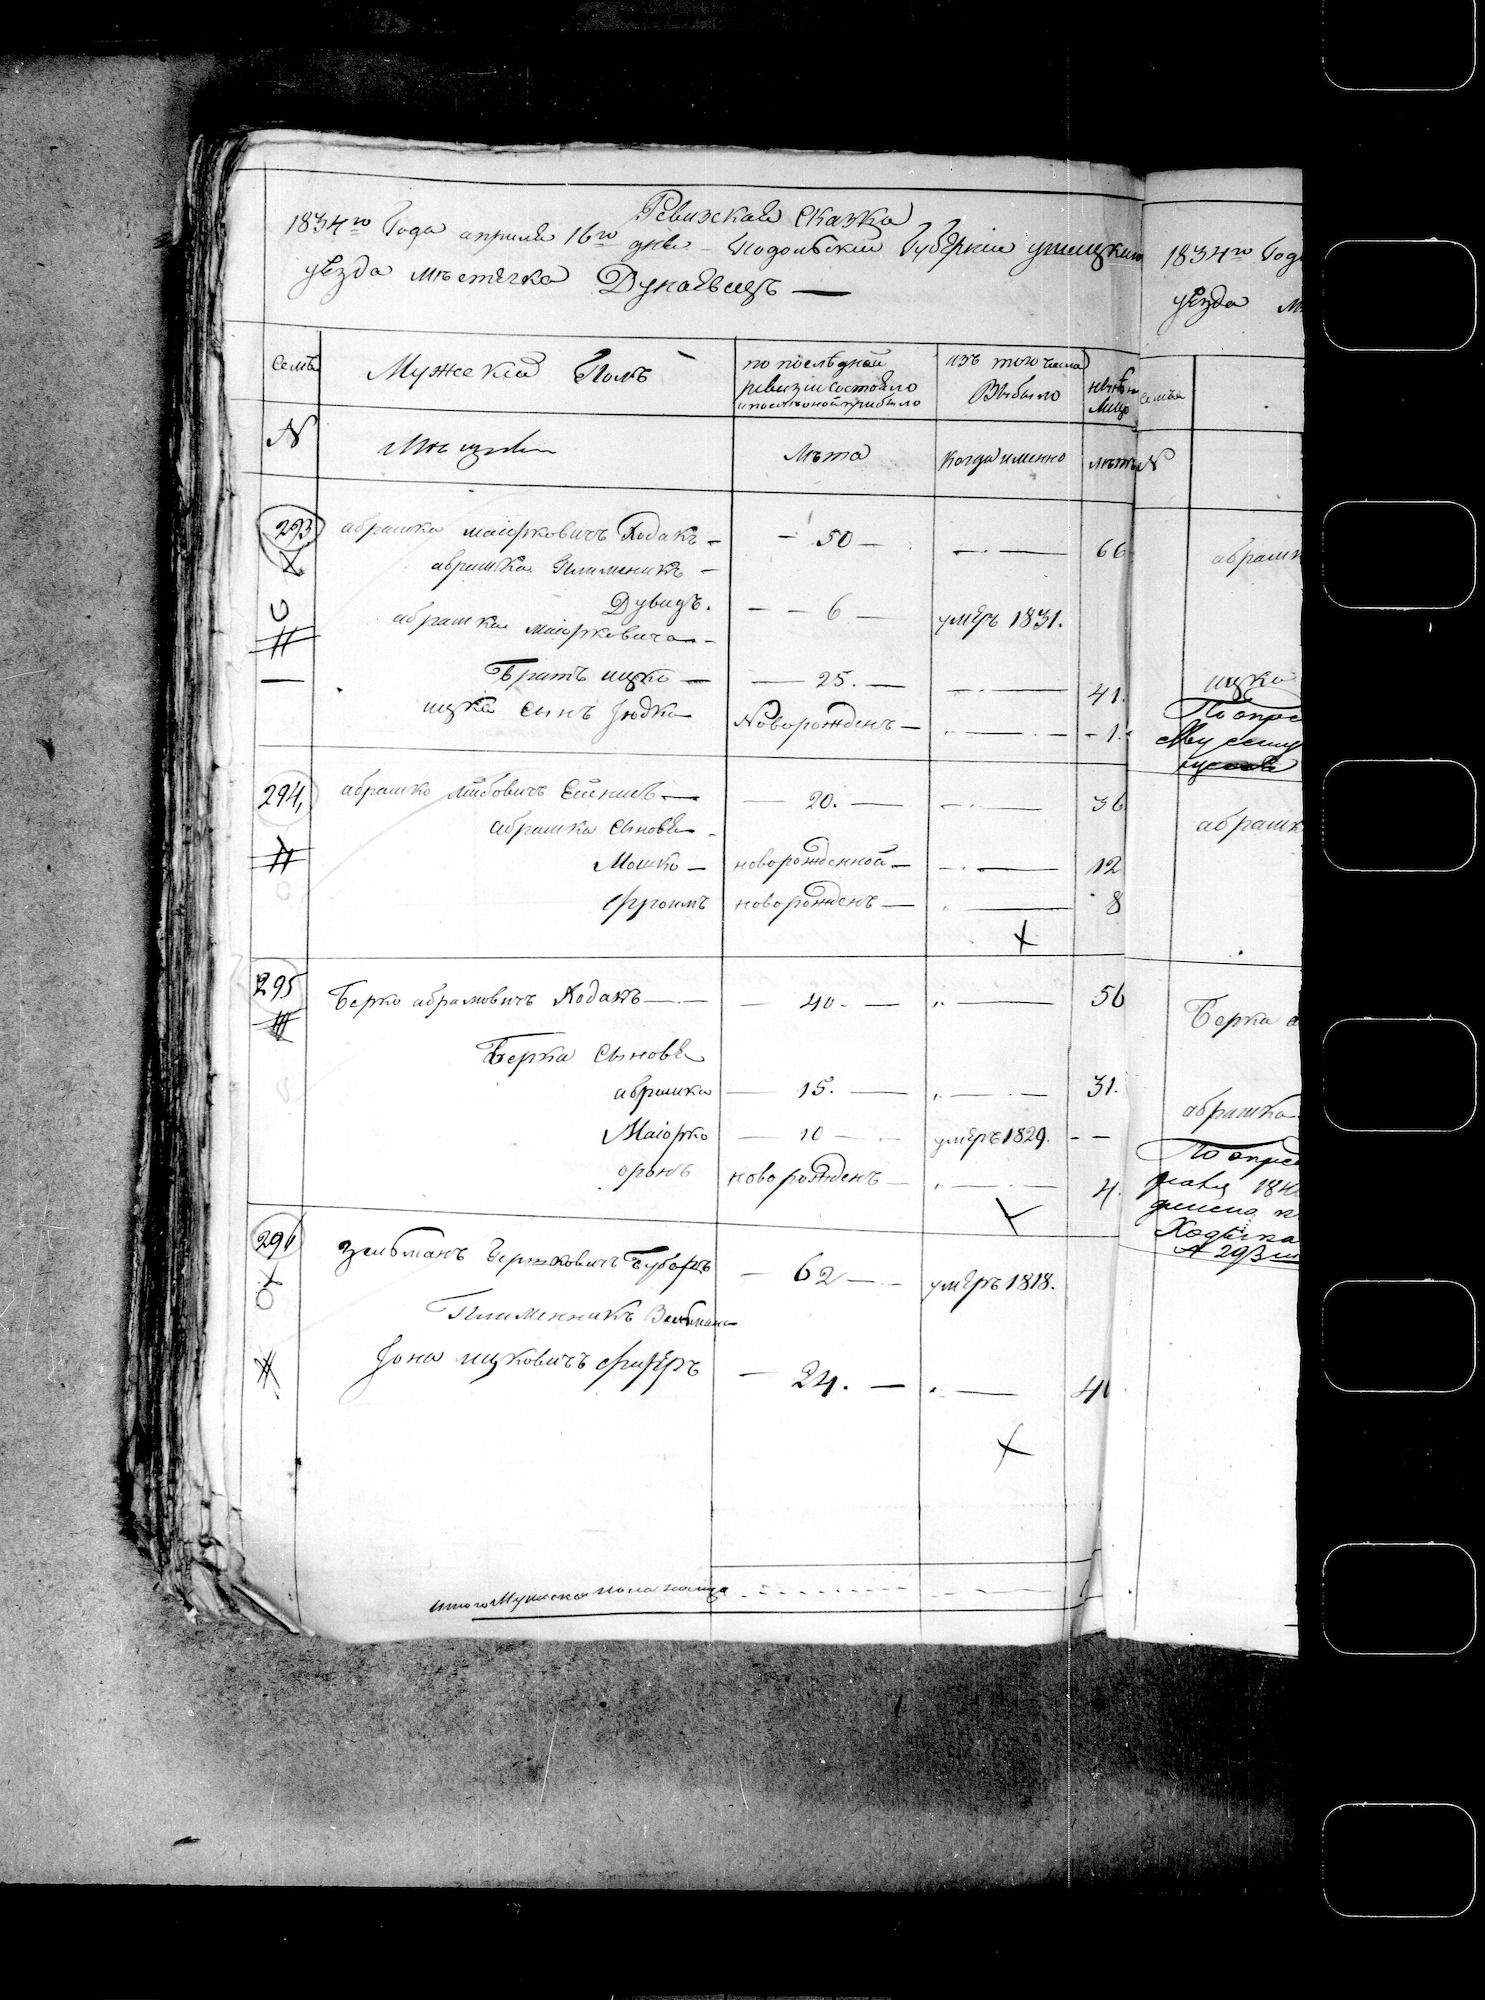 Ревизская Сказка
1834го Года апреля 16го дня Подольской Губернии Ушицкого
уезда местечка Дунаевецъ —
Семья
Мужеский Полъ
по последней ревизии состояло и после оной прибыло
изъ того числа Выбыло
ныне на Лицо
N
Мещане
Лета
Когда именно
лета
293 абрашко маiорковичъ Ходакъ — 50 — 66
абрашка Племеникъ —
Дувидъ. — 6 — умеръ 1831.
абрашка маiорковича —
Братъ ицко — 25. — 41.
ицка сынъ Iюдка Новорожденъ — 1.
294, абрашко лейбовичъ — 20. — 36
абрашка сыновья
Мошко — новорожденной — 12
Фроимъ новорожденъ — 8
295 Берко абрамовичъ Ходакъ — 40. — 56
Берка сыновья
абрашка — 15. — 31.
Маiорко — 10 — умеръ 1829. — —
оронъ новорожденъ — 4.
296 Зельманъ — 62 — умеръ 1818.
Племенникъ Зельмана
Iона ицковичъ — 24. — 40
Итого Мужеска пола налицо
1834го Года
уезда М
семья
N
абрашк
ицка
По опре
абрашк
Берка а
абрашка
По опред
184
Ходака
№ 293